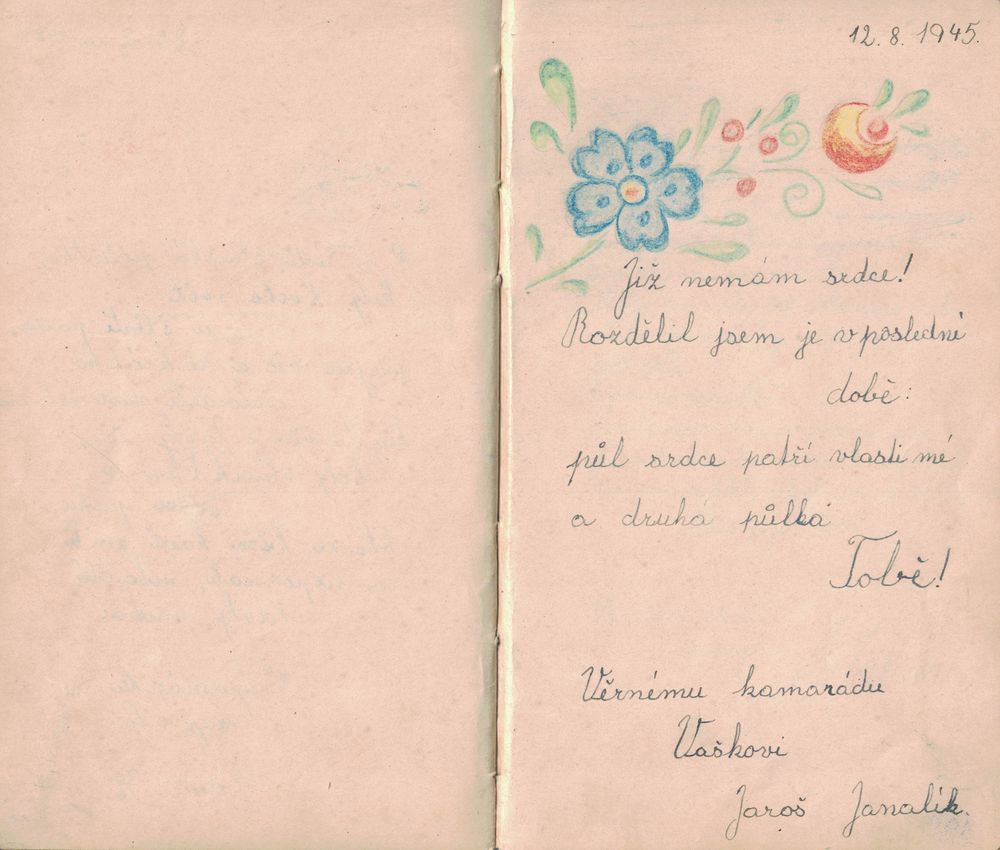 12. 8. 1945.
Již nemám srdce!
Rozdělil jsem je v poslední
době:
půl srdce patří vlasti mé
a druhá půlka
Tobě!
Věrnému kamarádu
Vaškovi
Jaroš Janalík.